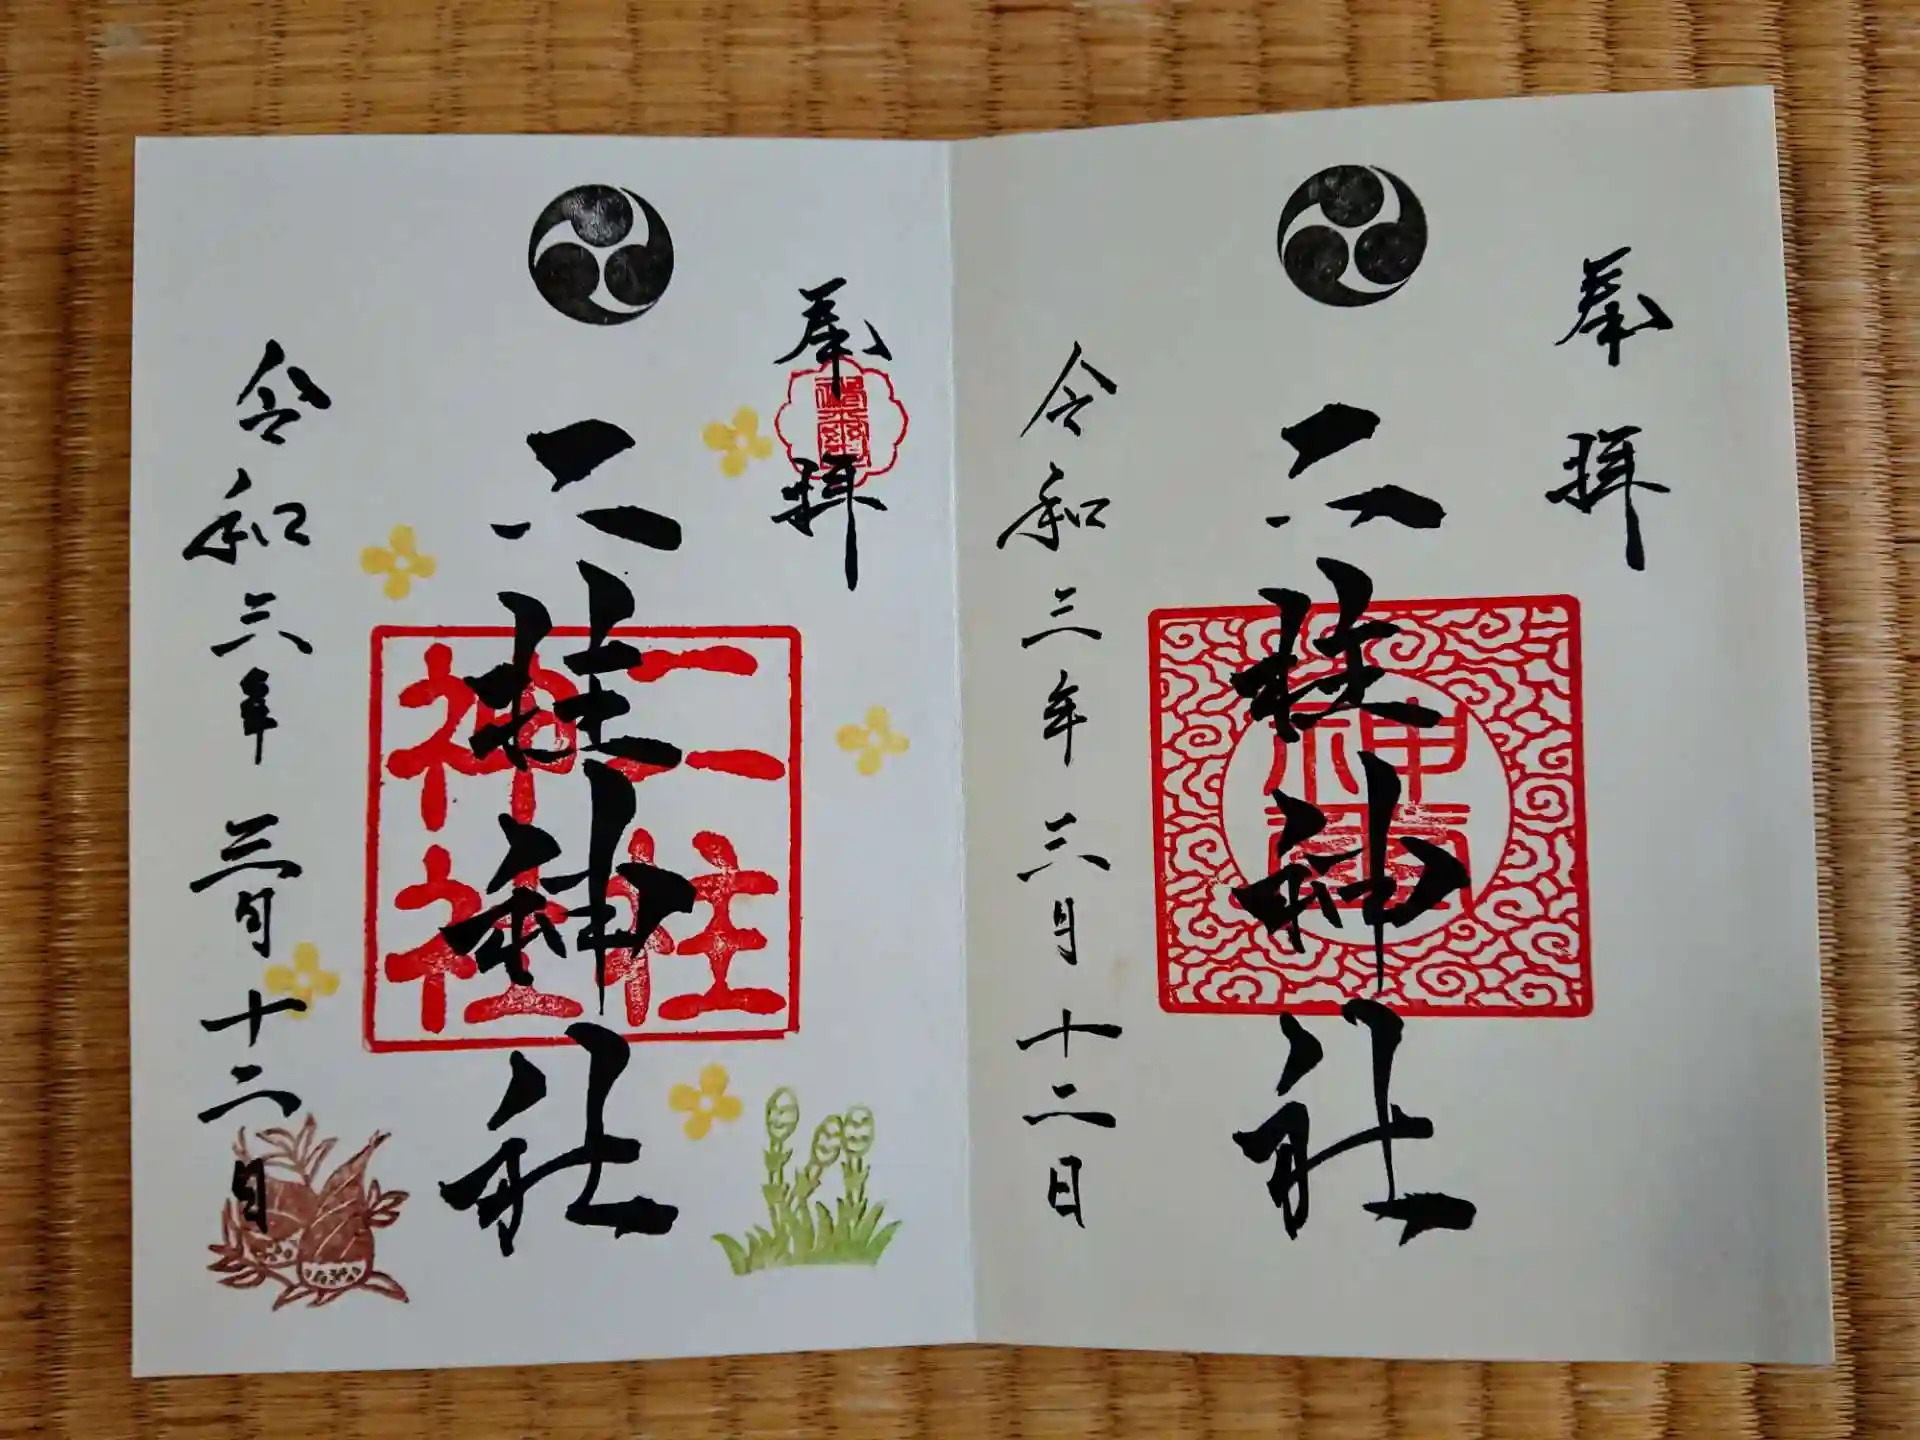 奉拝
二柱神社
神璽
令和三年三月十二日
奉拝
二柱神社
二柱神社
令和三年三月十二日